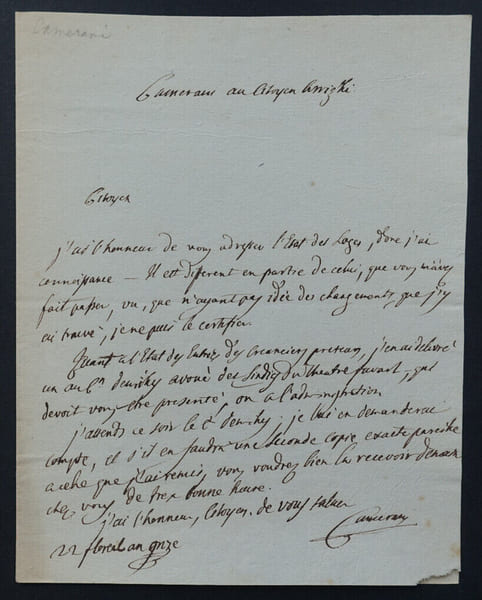 Camerani
Camerani au Citoyen Arrighi
Citoyen
j'ai l'honneur de vous adresser l'Etat des Loges, dont j'ai
connoissance — Il est different en partie de celui, que vous m'avez
fait passer, vu, que n'ayant pas idée des changements, que j'y
ai trouvé, je ne puis le certifier.
Quant a l'Etat des Entrées des Creanciers preteurs, j'en ai delivré
un au Cn avoué des Sindics du theatre favart, qui
devoit vous etre presenté, ou a l'administration
j'attends ce soir le Cn je lui en demanderai
compte, et s'il en faudra une seconde copie exacte pareille
a celle que j'ai remis, vous voudrez bien la recevoir demain
chez vous de tres bonne heure.
j'ai l'honneur, Citoyen, de vous saluer
Camerani
22 floreal an onze